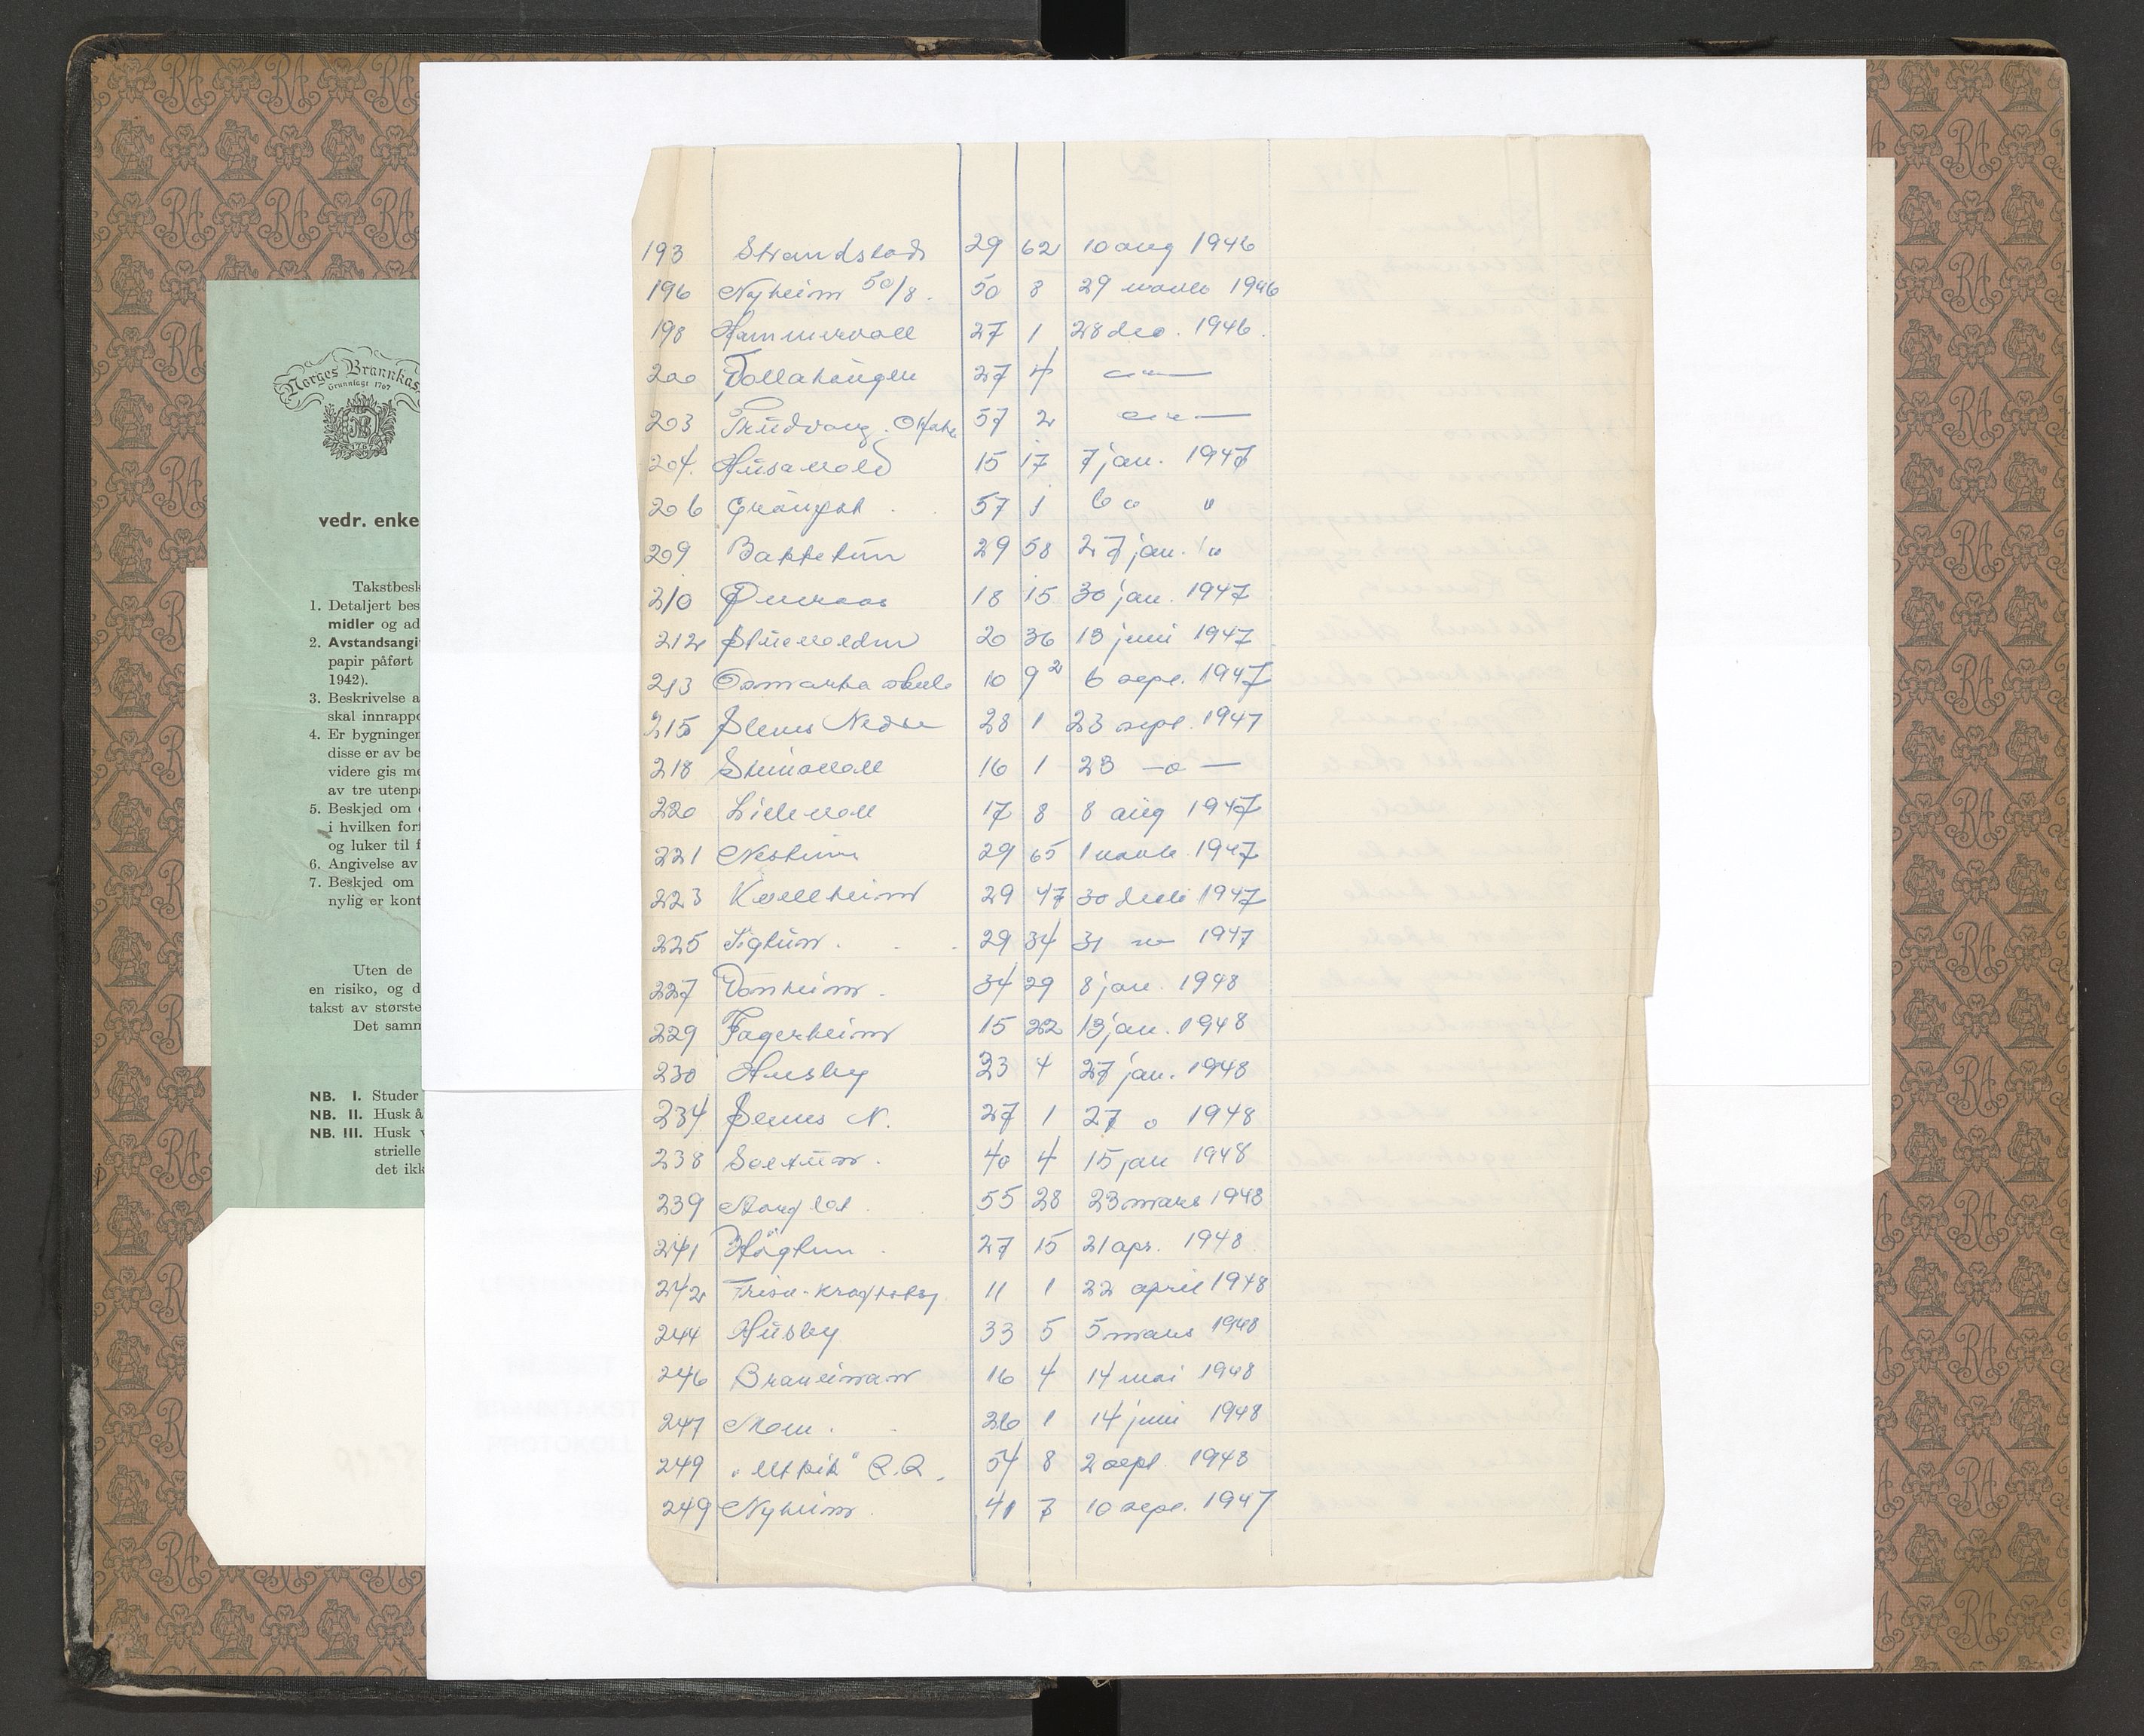 Norges Brannkas
Grunnlagt 1767
1767
vedr. enke
Takstbesk
1. Detaljert bes
midler og ad
2. Avstandsangiv
papir påført
1942).
3. Beskrivelse a
skal innrappo
4. Er bygninger
disse er av be
videre gis me
av tre utenpå
5. Beskjed om
i hvilken forf
og luker til f
6. Angivelse av
7. Beskjed om
nylig er kont
Uten de
en risiko, og d
takst av største
Det samm
NB. I. Studer
NB. II. Husk å
NB. III. Husk v
strielle
det ikk
193 Strandstad 29 62 10 aug 1946
196 Nyheim 50/8. 50 8 29 1946
198 Hammervoll 27 1 28 des. 1946.
200 Tollahaugen 27 4 —"—
203 Trudvang. 57 2 —"—
204. Husavold 15 17 7 jan. 1947
206 57 1 6 " "
209 Bakketun 29 58 27 jan. "
210 18 15 30 jan. 1947
212 20 36 13 juni 1947
213 Osmarka skule 10 9 2 6 sept. 1947
215 Nedre 28 1 23 sept. 1947
218 16 1 23 —"—
220 Lillevoll 17 8 8 aug 1947
221 29 65 1 1947
223 Kvellheim 29 47 30 1947
225 Sigtun. 29 34 31 —"— 1947
227 Vonheim. 34 29 8 jan. 1948
229 Fagerheim 15 22 13 jan. 1948
230 Husby 23 4 27 jan. 1948
234 N. 27 1 27 " 1948
238 Soltun. 40 4 15 jan 1948
239 55 28 23 mars 1948
241 Högtun. 27 15 21 apr. 1948
242 11 1 22 april 1948
244 Husby 33 5 5 mars 1948
246 16 4 14 mai 1948
247 Moen. 26 1 14 juni 1948
249 „Utsikt" 54 8 2 sept. 1948
249 Nyheim. 41 7 10 sept. 1947